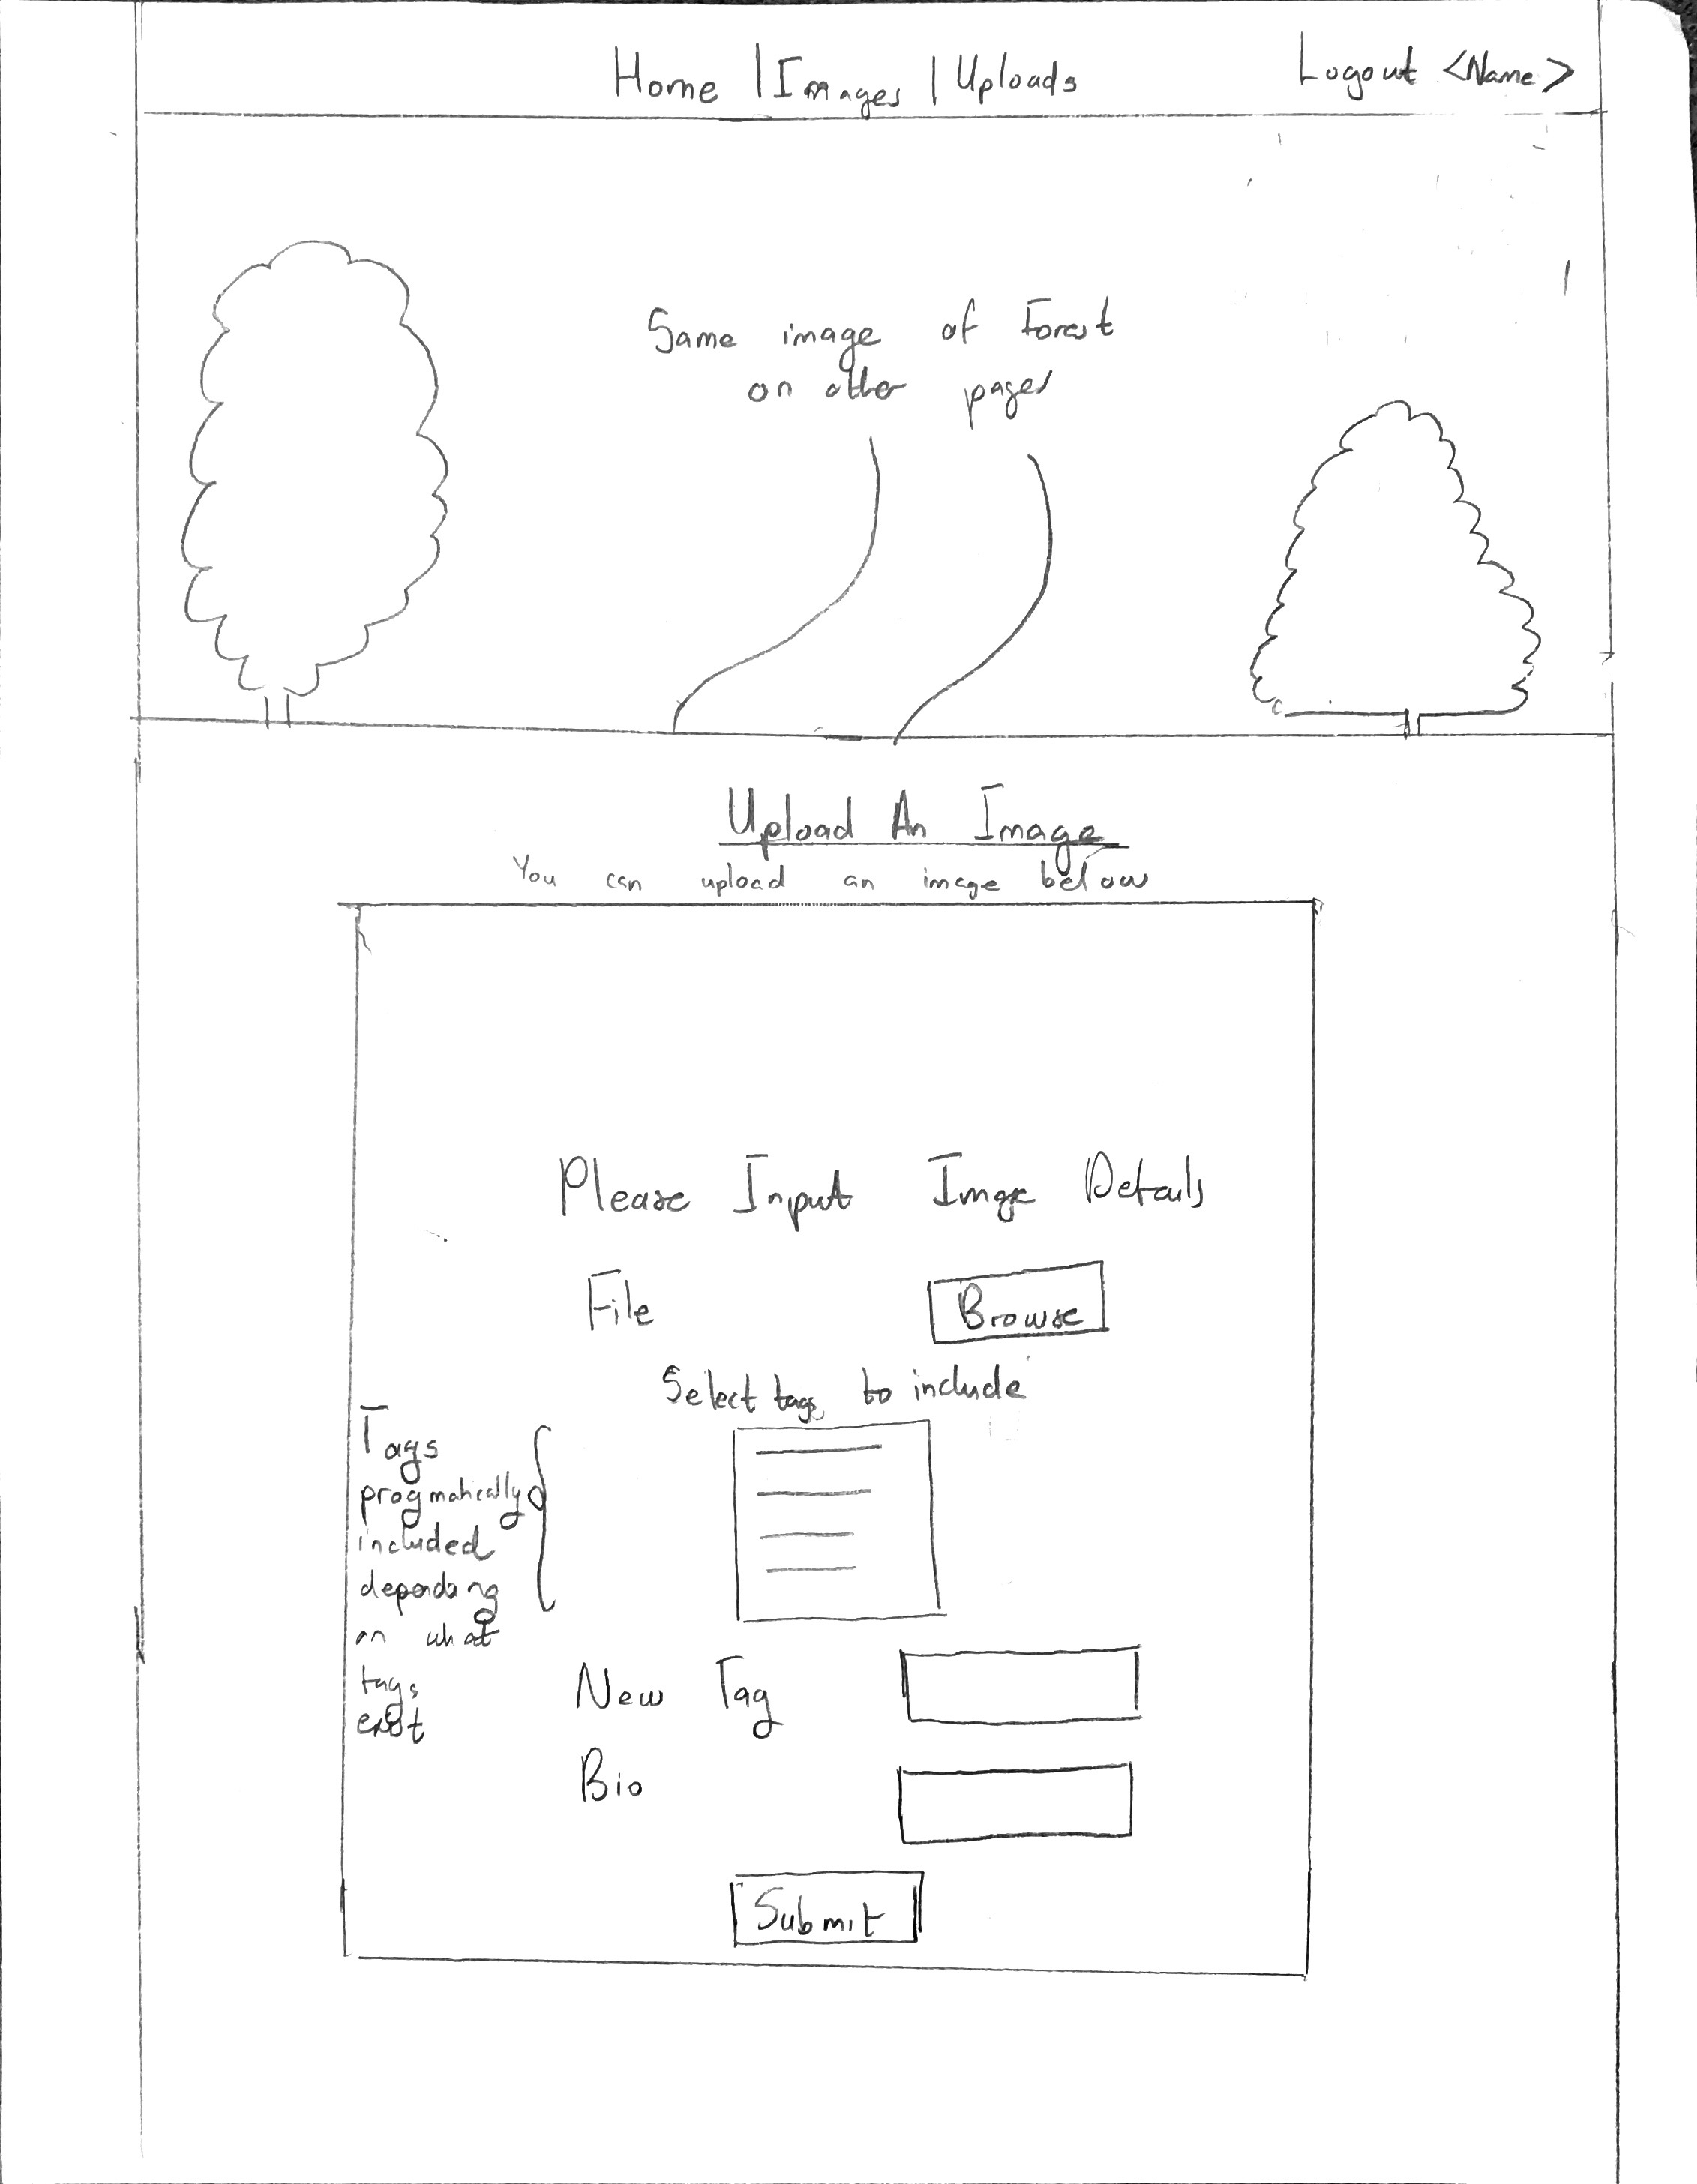 Home | Images | Uploads
Logout <Name>
Same image of Forest
on other pages
Upload An Image
You can upload an image below
Please Input Image Details
File
Browse
Select tags to include
Tags
progmatically
included
depending
on what
tags
exist
New Tag
Bio
Submit